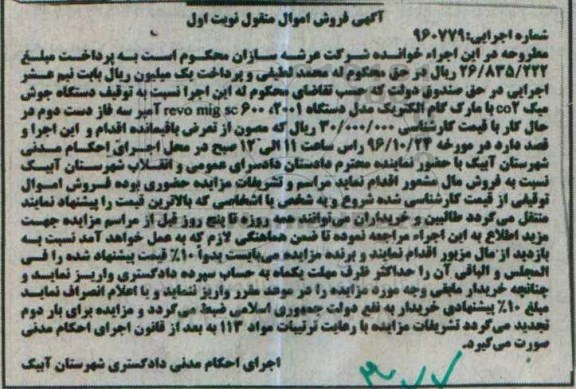 آگهی فروش اموال منقول نوبت اول
شماره اجرایی:۹۶۰۷۷۹
مطروحه در این اجراء خوانده شرکت عرشه سازان محکوم است به پرداخت مبلغ
۲۶/۸۳۵/۲۲۲ ریال در حق محکوم له محمد لطیفی و پرداخت یک میلیون ریال بابت نیم عشر
اجرایی در حق صندوق دولت که حسب تقاضای محکوم له این اجرا نسبت به توقیف دستگاه جوش
میگ co۲ با مارک گام الکتریک مدل دستگاه ۲۰۰۱، ۶۰۰ revo mig sc آمپر سه فاز دست دوم در
حال کار با قیمت کارشناسی ۳۰/۰۰۰/۰۰۰ ریال که مصون از تعرض باقیمانده اقدام و این اجرا و
قصد دارد در مورخه ۹۶/۱۰/۲۴ راس ساعت ۱۱ الی ۱۲ صبح در محل اجرای احکام مدنی
شهرستان آبیک با حضور نماینده محترم دادستان دادسرای عمومی و انقلاب شهرستان آبیک
نسبت به فروش مال مشمور اقدام نماید مراسم و تشریفات مزایده حضوری بوده فروش اموال
توقیفی از قیمت کارشناسی شده شروع و به شخص یا اشخاصی که بالاترین قیمت را پیشنهاد نمایند
منتقل می‌گردد طالبین و خریداران می‌توانند همه روزه تا پنج روز قبل از مراسم مزایده جهت
مزید اطلاع به این اجراء مراجعه نموده تا ضمن هماهنگی لازم که به عمل خواهد آمد نسبت به
بازدید از مال مزبور اقدام نمایند و برنده مزایده می‌بایست بدوآ ۱۰٪ قیمت پیشنهاد شده را فی
المجلس و الباقی آن را حداکثر ظرف مهلت یکماه به حساب سپرده دادگستری واریز نماید و
چنانچه خریدار مابقی وجه مورد مزایده را در موعد مقرر واریز ننماید و یا اعلام انصراف نماید
مبلغ ۱۰٪ پیشنهادی خریدار به نفع دولت جمهوری اسلامی ضبط می‌گردد و مزایده برای بار دوم
تجدید می‌گردد تشریفات مزایده با رعایت ترتیبات مواد ۱۱۳ به بعد از قانون اجرای احکام مدنی
صورت می‌گیرد.
اجرای احکام مدنی دادگستری شهرستان آبیک